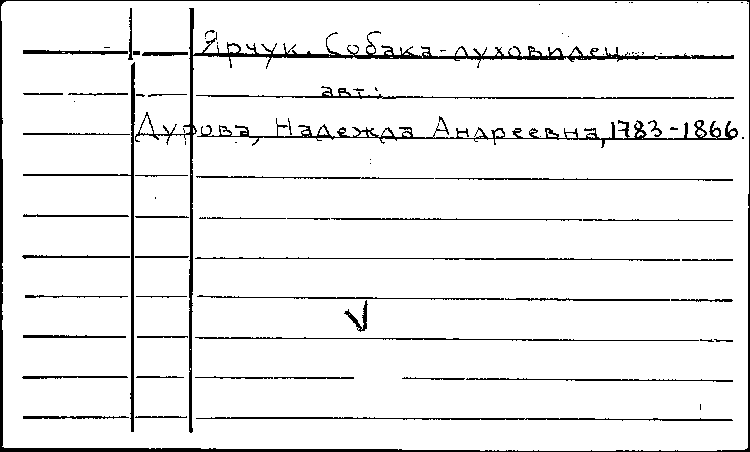 Ярчук. Собака-духовидец
авт.:
Дурова, Надежда Андреевна, 1783-1866.
V